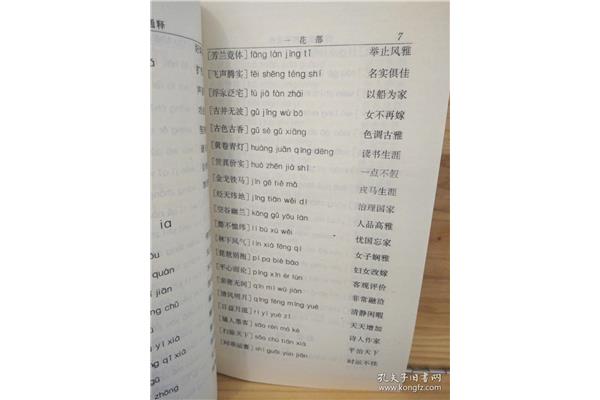 通释
一 花 部 7
[芳兰竟体] fāng lán jìng tǐ 举止风雅
[飞声腾实] fēi shēng téng shí 名实俱佳
[浮家泛宅] fú jiā fàn zhái 以船为家
[古井无波] gǔ jǐng wú bō 女不再嫁
[古色古香] gǔ sè gǔ xiāng 色调古雅
[黄卷青灯] huáng juàn qīng dēng 读书生涯
[货真价实] huò zhēn jià shí 一点不假
[金戈铁马] jīn gē tiě mǎ 戎马生涯
[经天纬地] jīng tiān wěi dì 治理国家
[空谷幽兰] kōng gǔ yōu lán 人品高雅
[嫠不恤纬] lí bù xù wěi 忧国忘家
[林下风气] lín xià fēng qì 女子娴雅
[琵琶别抱] pí pa bié bào 妇女改嫁
[平心而论] píng xīn ér lùn 客观评价
[亲密无间] qīn mì wú jiàn 非常融洽
[清风明月] qīng fēng míng yuè 清静闲暇
[日益月滋] rì yì yuè zī 天天增加
[骚人墨客] sāo rén mò kè 诗人作家
[扫除天下] sǎo chú tiān xià 平治天下
[时乖运蹇] shí guāi yùn jiǎn 时运不佳
ia
quán
jiàn
chū
yì xiǎo
qī xīn
shū
guāng
zhōng
孔夫子旧书网